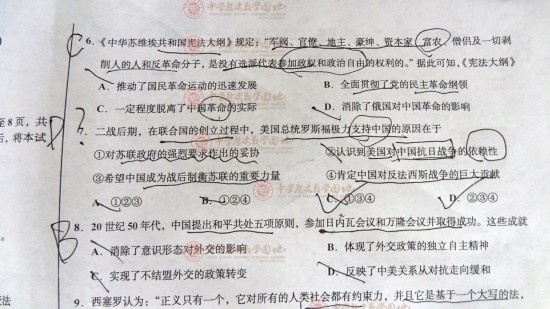 C 6.《中华苏维埃共和国宪法大纲》规定:“军阀、官僚、地主、豪绅、资本家、富农、僧侣及一切剥
削人的人和反革命分子,是没有选派代表参加政权和政治自由的权利的。”据此可知,《宪法大纲》
A.推动了国民革命运动的迅速发展 B.全面贯彻了党的民主革命纲领
C.一定程度脱离了中国革命的实际 D.消除了俄国对中国革命的影响
至8页,共
后,将本试
D ? 二战后期,在联合国的创立过程中,美国总统罗斯福极力支持中国的原因在于
①对苏联政府的强烈要求作出的妥协 ②认识到美国对中国抗日战争的依赖性
③希望中国成为战后制衡苏联的重要力量 ④肯定中国对反法西斯战争的巨大贡献
A.①②③ B.①②④ C.①③④ D.②③④
B 8.20世纪50年代,中国提出和平共处五项原则,参加日内瓦会议和万隆会议并取得成功。这些成就
A.消除了意识形态对外交的影响 B.体现了外交政策的独立自主精神
C.实现了不结盟外交的政策转变 D.反映了中美关系从对抗走向缓和
9.西塞罗认为:“正义只有一个,它对所有的人类社会都有约束力,并且它是基于一个大写的法,
中学历史教学园地